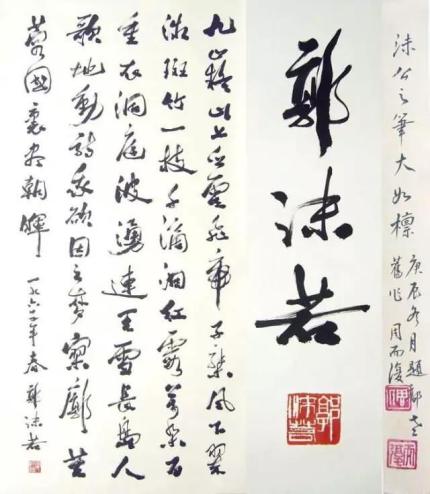 沫公之筆大如椽
庚辰冬月題郭老
舊作 周而復
郭沫若
九嶷山上白雲飛帝子乘風下翠
微斑竹一枝千滴淚紅霞萬朵百
重衣洞庭波湧連天雪長島人
歌地動詩我欲因之夢寥廓芙
蓉國裏盡朝暉 一九六年春 郭沫若